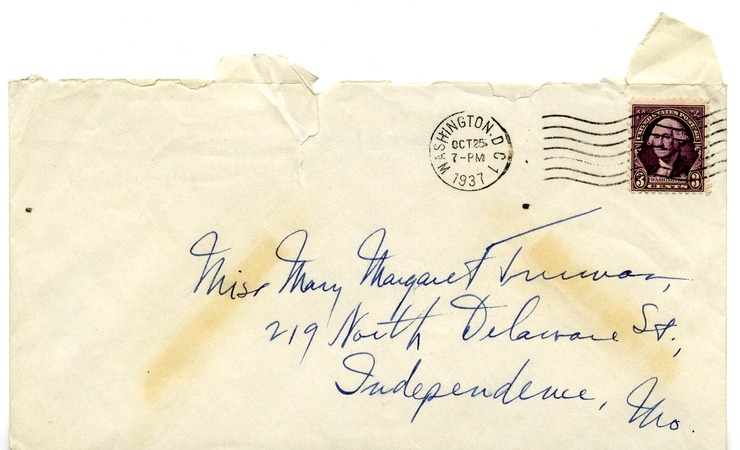 WASHINGTON, D.C. 1
OCT 25
7-PM
1937
UNITED STATES POSTAGE
WASHINGTON
3 CENTS 3
Miss Mary Margaret Truman,
219 North Delaware St.,
Independence, Mo.